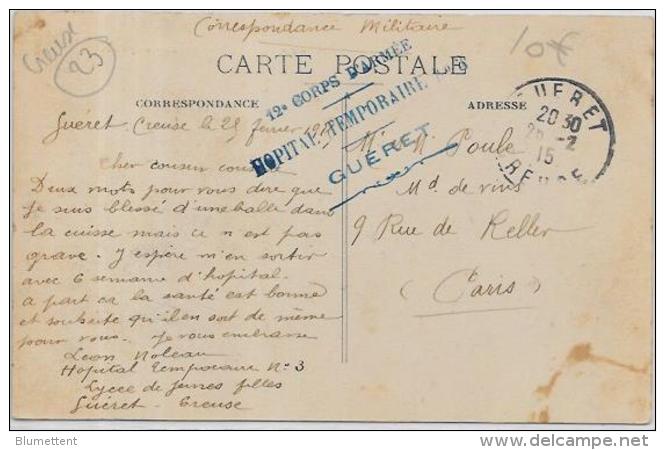 Correspondance Militaire
Creuse
23
10€
CARTE POSTALE
CORRESPONDANCE
ADRESSE
12e CORPS D'ARMÉE
HOPITAL TEMPORAIRE
GUÉRET
GUERET
20 30
2
15
CREUSE
Guéret. Creuse le 25 fevrier 1915
Cher cousin
Deux mots pour vous dire que
je suis blessé d'une balle dans
la cuisse mais ce n est pas
grave. J espère m'en sortir
avec 6 semaine d'hopital.
a part ca la santé est bonne
et souhaite qu'il en soit de même
pour vous. Je vous embrasse
Leon Noleau
Hopital temporaire No 3
Lycee de jeunes filles
Guéret. Creuse
Poule
Md. de vins
9 Rue de Keller
(Paris)
Blumettent
www.delcampe.net